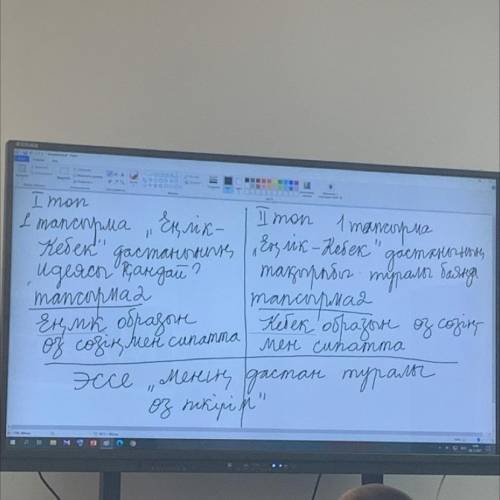 I топ
1 тапсырма „Еңлік-
Кебек" дастанының
идеясы қандай?
тапсырма 2
Еңлік образын
өз сөзіңмен сипатта
II топ 1 тапсырма
„Еңлік-Кебек" дастанының
тақырыбы туралы баянда
тапсырма 2
Кебек образын өз сөзің
мен сипатта
Эссе „Менің дастан туралы
өз пікірім"